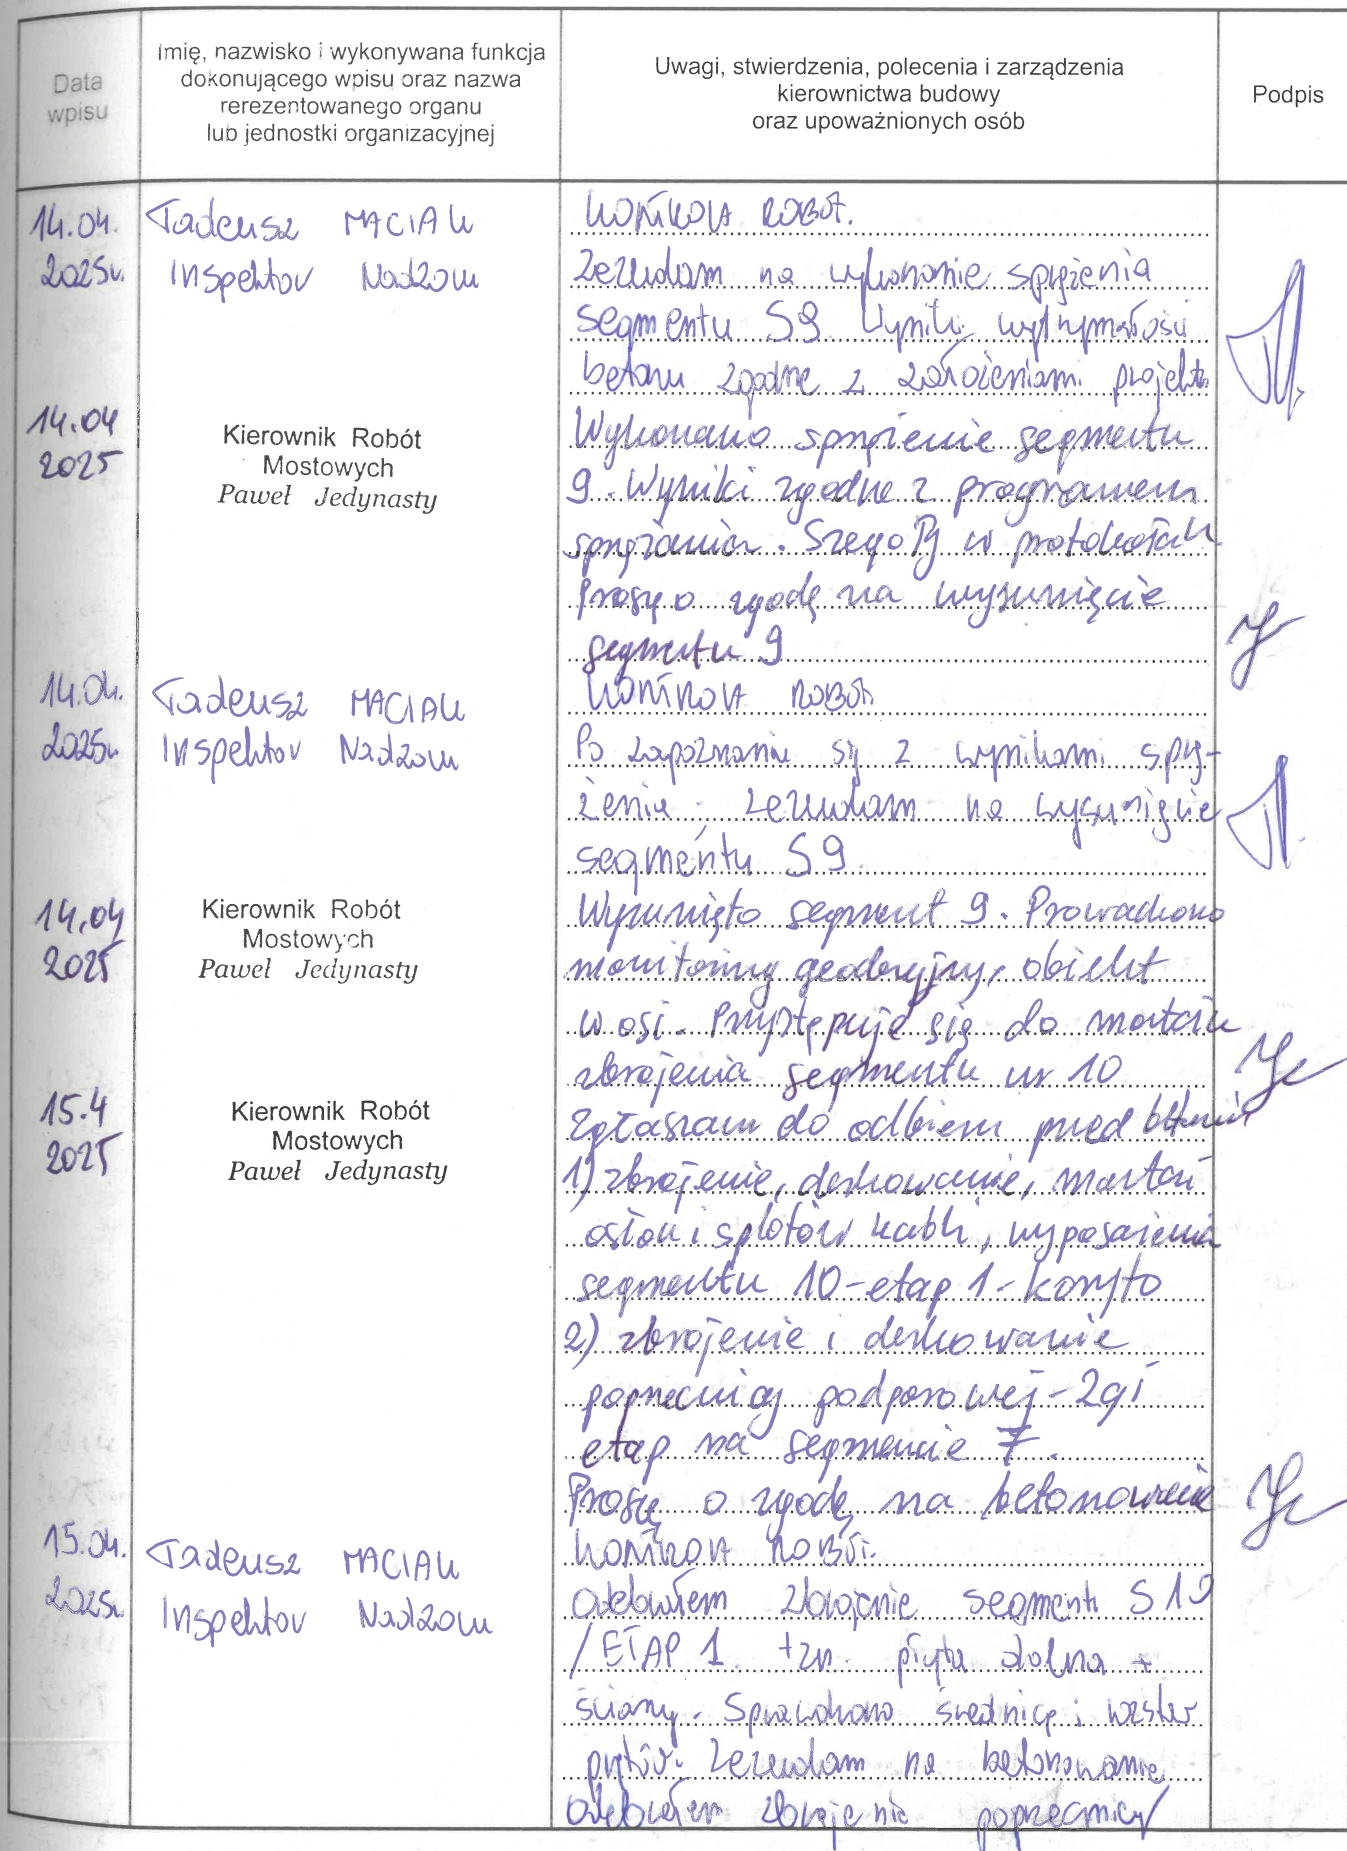 Data
wpisu
Imię, nazwisko i wykonywana funkcja
dokonującego wpisu oraz nazwa
rerezentowanego organu
lub jednostki organizacyjnej
Uwagi, stwierdzenia, polecenia i zarządzenia
kierownictwa budowy
oraz upoważnionych osób
Podpis
14.04.
2025r.
Tadeusz MACIAK
Inspektor Nadzoru
KONTROLA ROBÓT.
Zezwalam na wykonanie sprężenia
segmentu S9 Wyniki wytrzymałości
betonu zgodne z założeniami projektu
14.04
2025
Kierownik Robót
Mostowych
Paweł Jedynasty
Wykonano sprężenie segmentu
9. Wyniki zgodne z programem
sprężania. Szczegóły w protokołach
Proszę o zgodę na wysunięcie
segmentu 9
14.04.
2025r.
Tadeusz MACIAK
Inspektor Nadzoru
KONTROLA ROBÓT.
Po zapoznaniu się z wynikami sprę-
żenia, zezwalam na wysunięcie
segmentu S9
14.04
2025
Kierownik Robót
Mostowych
Paweł Jedynasty
Wysunięto segment 9. Prowadzono
monitoring geodezyjny, obiekt
w osi. Przystępuje się do montażu
zbrojenia segmentu nr 10
15.4
2025
Kierownik Robót
Mostowych
Paweł Jedynasty
Zgłaszam do odbioru przed
1) zbrojenie, deskowanie, montaż
osłon i splotów kabli, wyposażenia
segmentu 10-etap 1-koryto
2) zbrojenie i deskowanie
poprzecznicy podporowej-2gi
etap na segmencie 7.
Proszę o zgodę na betonowanie
15.04.
2025r.
Tadeusz MACIAK
Inspektor Nadzoru
KONTROLA ROBÓT.
Odebrałem zbrojenie segmentu S10
/ETAP 1 tzn. płyta dolna +
ściany. Sprawdzono średnicę i rozstaw
prętów. Zezwalam na betonowanie
Odebrałem zbrojenie poprzecznicy